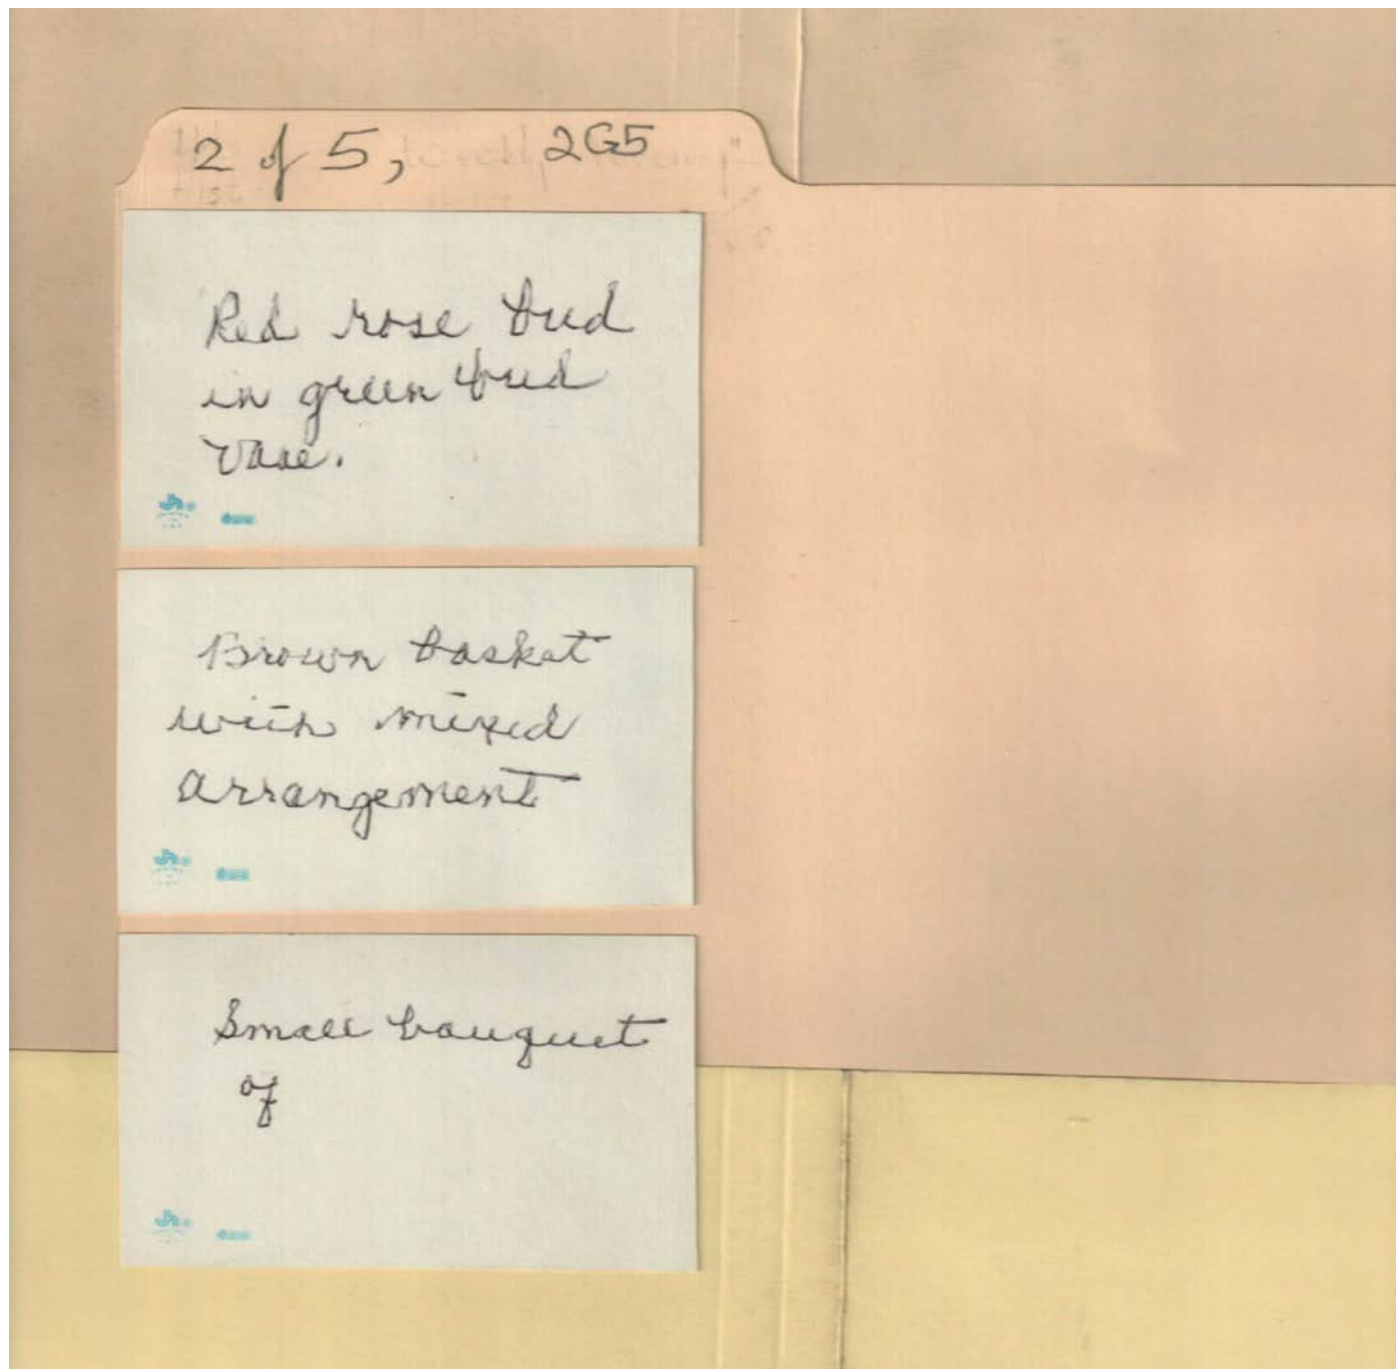 2 of 5, 2G5
Red rose bud
in green bud
vase.
Brown basket
with mixed
arrangement
Small bouquet
of